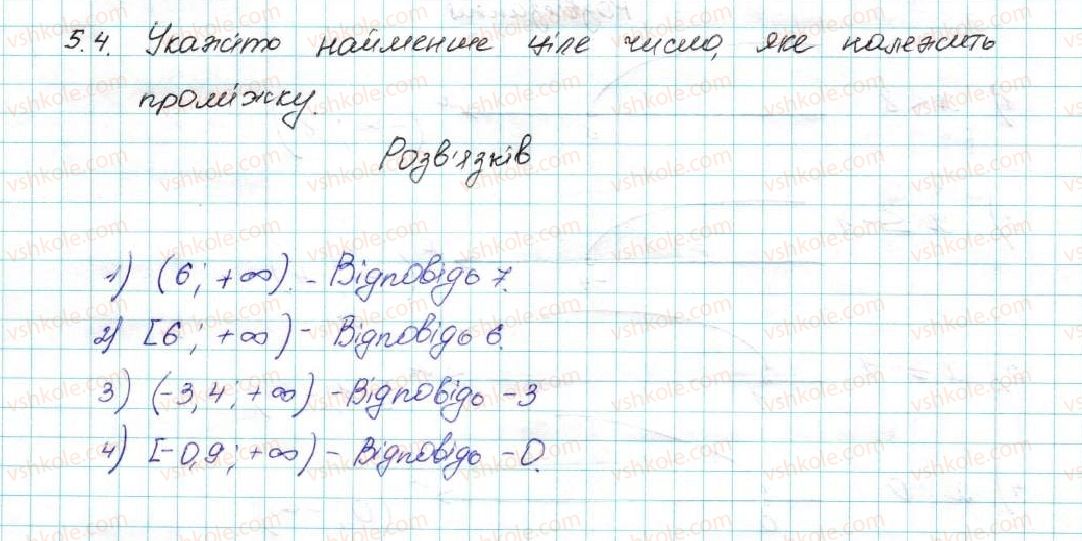 5.4. Укажіто найменше ціле число, яке належить
проміжку.
Розв'язків
1) (6; +∞). - Відповідь 7.
2) [6; +∞) - Відповідь 6.
3) (-3,4; +∞) - Відповідь -3
4) [-0,9; +∞) - Відповідь -0.
vshkole.com